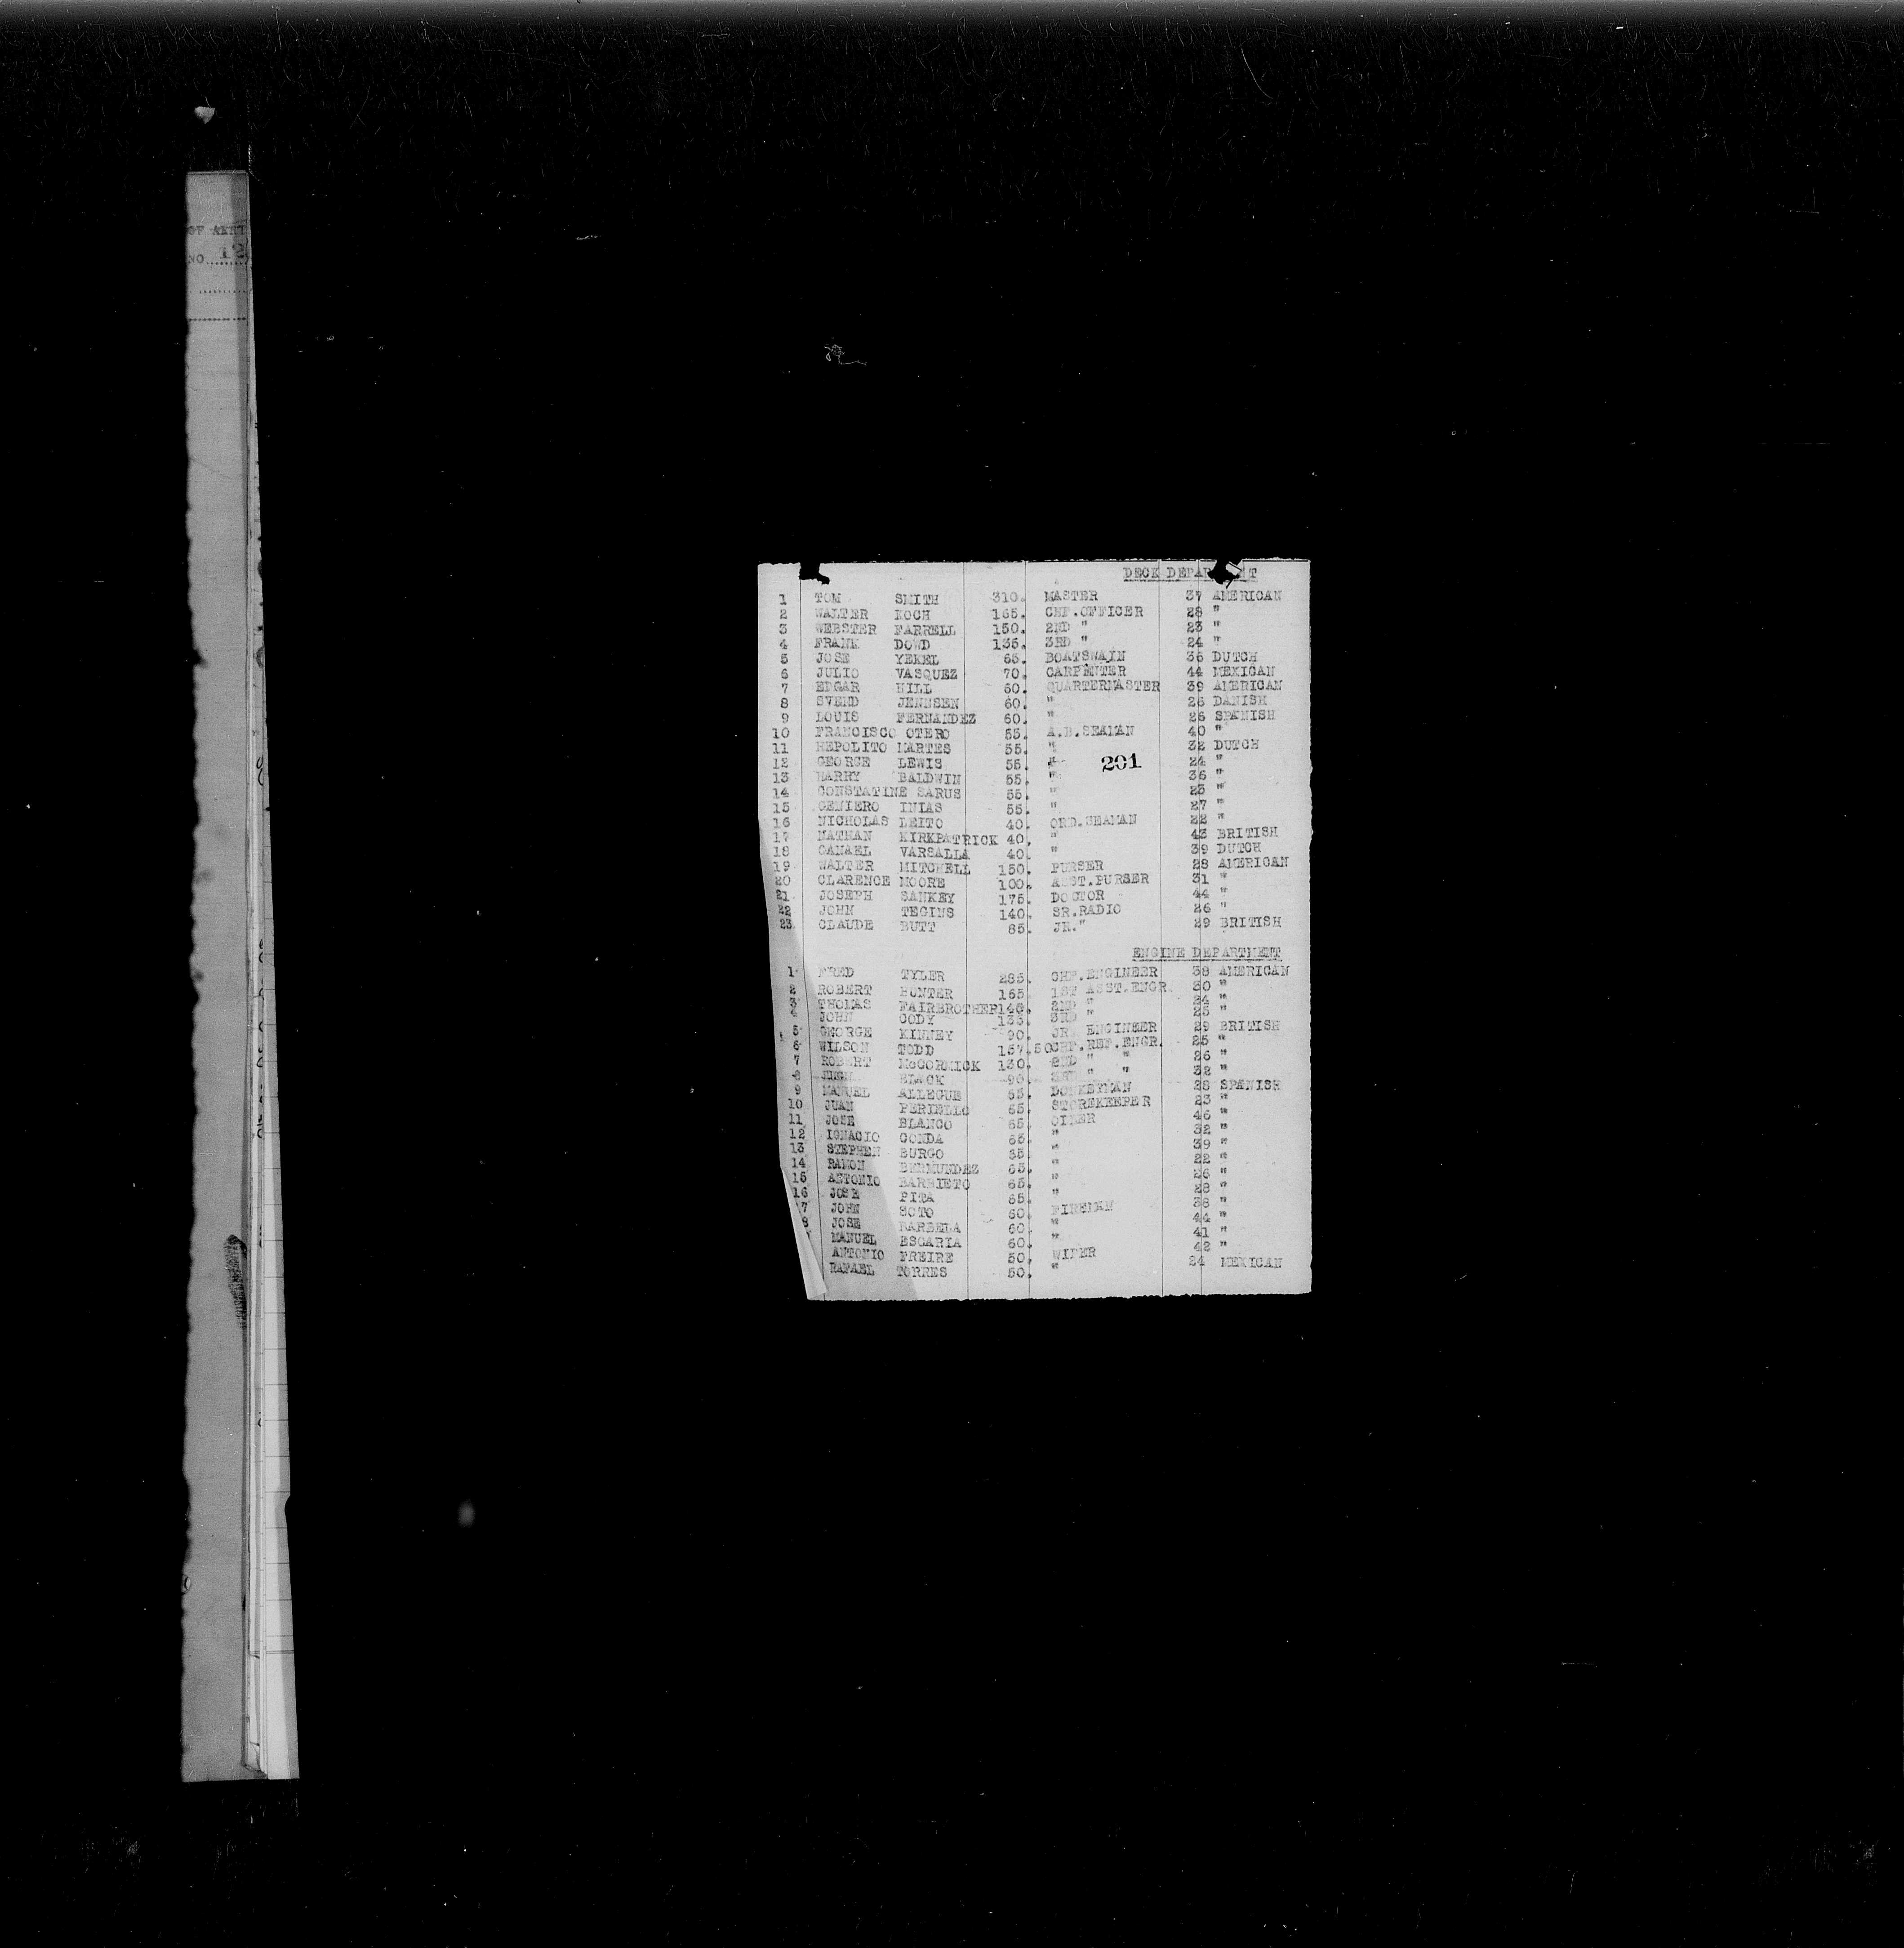 OF ARRI
NO
DECK DEPAR T
1 TOM SMITH 310. MASTER 37 AMERICAN
2 WALTER KOCH 165. CHF.OFFICER 28 "
3 WEBSTER FARRELL 150. 2ND " 23 "
4 FRANK DOWD 135. 3RD " 24 "
5 JOSE YEKEL 65. BOATSWAIN 36 DUTCH
6 JULIO VASQUEZ 70. CARPENTER 44 MEXICAN
7 EDGAR HILL 60. QUARTERMASTER 39 AMERICAN
8 SVEND JENNSEN 60. " 26 DANISH
9 LOUIS FERNANDEZ 60. " 26 SPANISH
10 FRANCISCO OTERO 55. A.B.SEAMAN 40 "
11 HEPOLITO MARTES 55. " 32 DUTCH
12 GEORGE LEWIS 55. " 24 "
201
13 HARRY BALDWIN 55. " 36 "
14 CONSTATINE SARUS 55. " 23 "
15 GENIERO INIAS 55. " 27 "
16 NICHOLAS LEITO 40. ORD.SEAMAN 22 "
17 NATHAN KIRKPATRICK 40. " 43 BRITISH
18 CANAEL VARSALLA 40. " 39 DUTCH
19 WALTER MITCHELL 150. PURSER 28 AMERICAN
20 CLARENCE MOORE 100. ASST.PURSER 31 "
21 JOSEPH SANKEY 175. DOCTOR 44 "
22 JOHN TEGINS 140. SR.RADIO 26 "
23. CLAUDE BUTT 85. JR." 29 BRITISH
ENGINE DEPARTMENT
1 FRED TYLER 285. CHF.ENGINEER 38 AMERICAN
2 ROBERT HUNTER 165. 1ST ASST.ENGR. 30 "
3 THOLAS FAIRBROTHER 2ND " 24 "
4 JOHN CODY 135. 3RD 25 "
5 GEORGE KINNEY 90. JR. ENGINEER 29 BRITISH
6 WILSON TODD 157.50 CHF.REF.ENGR. 25 "
7 ROBERT McCORMICK 130. 2ND " " 26 "
8 BLACK 90. " " 32 "
9 MANUEL ALLEGUE 65. DONKEYMAN 28 SPANISH
10 JUAN PERIELLO 65. STOREKEEPER 23 "
11 JOSE BLANCO 65. OILER 46 "
12 IGNACIO CONDA 65. " 32 "
13 STEPHEN BURGO 65. " 39 "
14 RAMON BERMUNDEZ 65. " 22 "
15 ANTONIO BARRIETO 65. " 26 "
16 JOSE PITA 65. " 28 "
7 JOHN SOTO 60. FIREMAN 38 "
8 JOSE BARBELA 60. " 44 "
MANUEL ESCARIA 60. " 41 "
ANTONIO FREIRE 50. WIPER 42 "
RAFAEL TORRES 50. " 24 MEXICAN